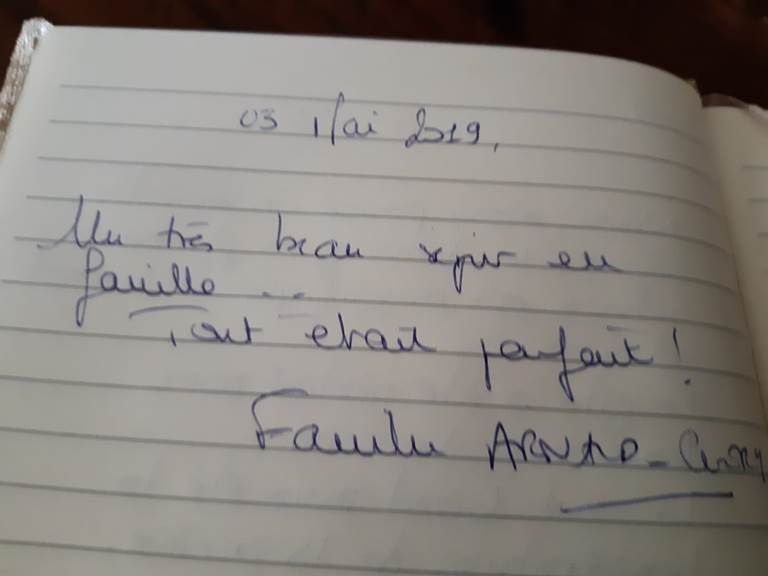 03 Mai 2019,
Un très beau séjour en
famille ...
Tout était parfait !
Famille ARNAD -